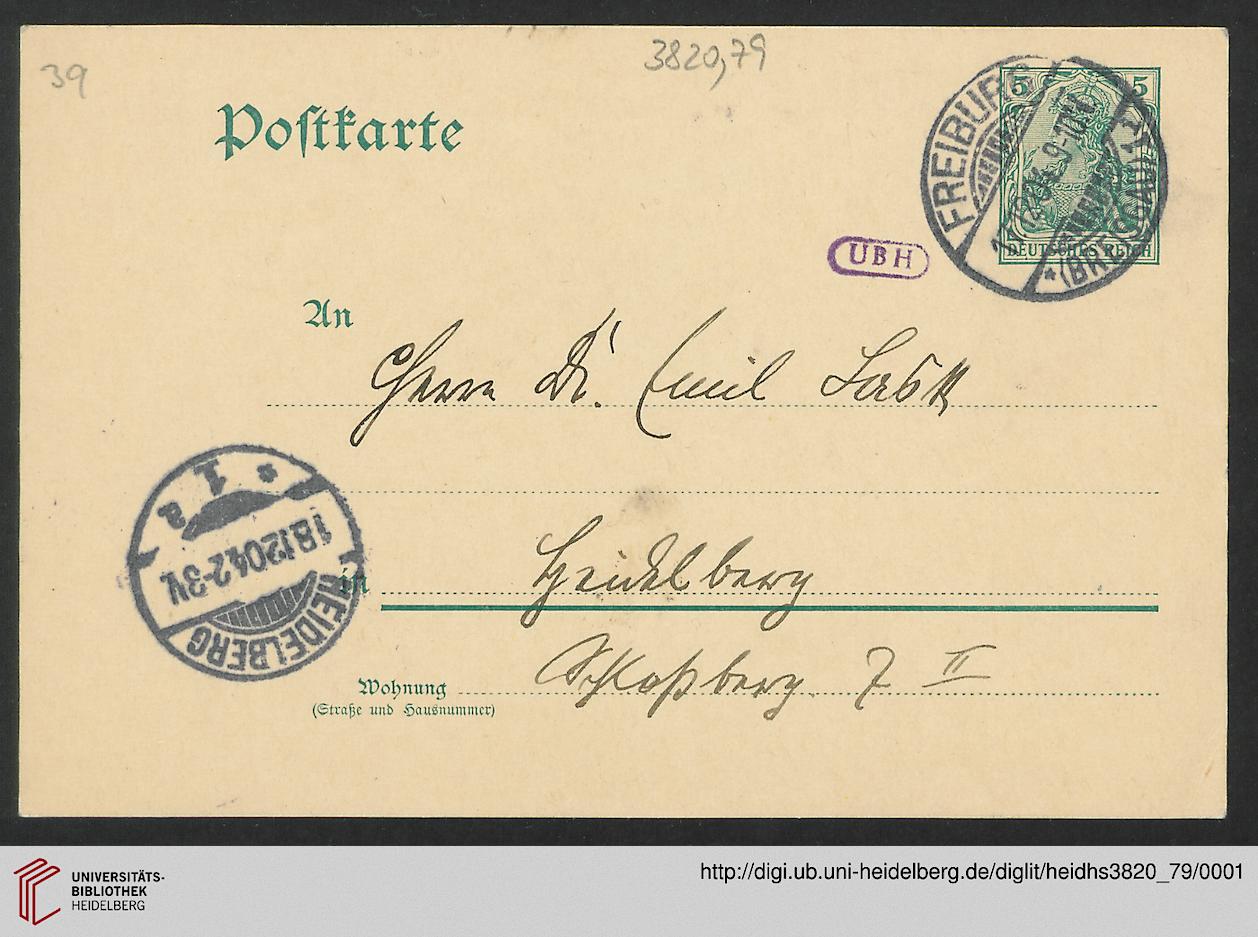 39
3820,79
Postkarte
5 5
FREIBURG
9-10V.
* (BREISGAU) 1
DEUTSCHES REICH
UBH
An
Herrn Dr. Emil Lask
* 1 a
18.12.04.2-3N.
HEIDELBERG
in Heidelberg
Wohnung Schloßberg 7 II
(Straße und Hausnummer)
UNIVERSITÄTS-
BIBLIOTHEK
HEIDELBERG
http://digi.ub.uni-heidelberg.de/diglit/heidhs3820_79/0001